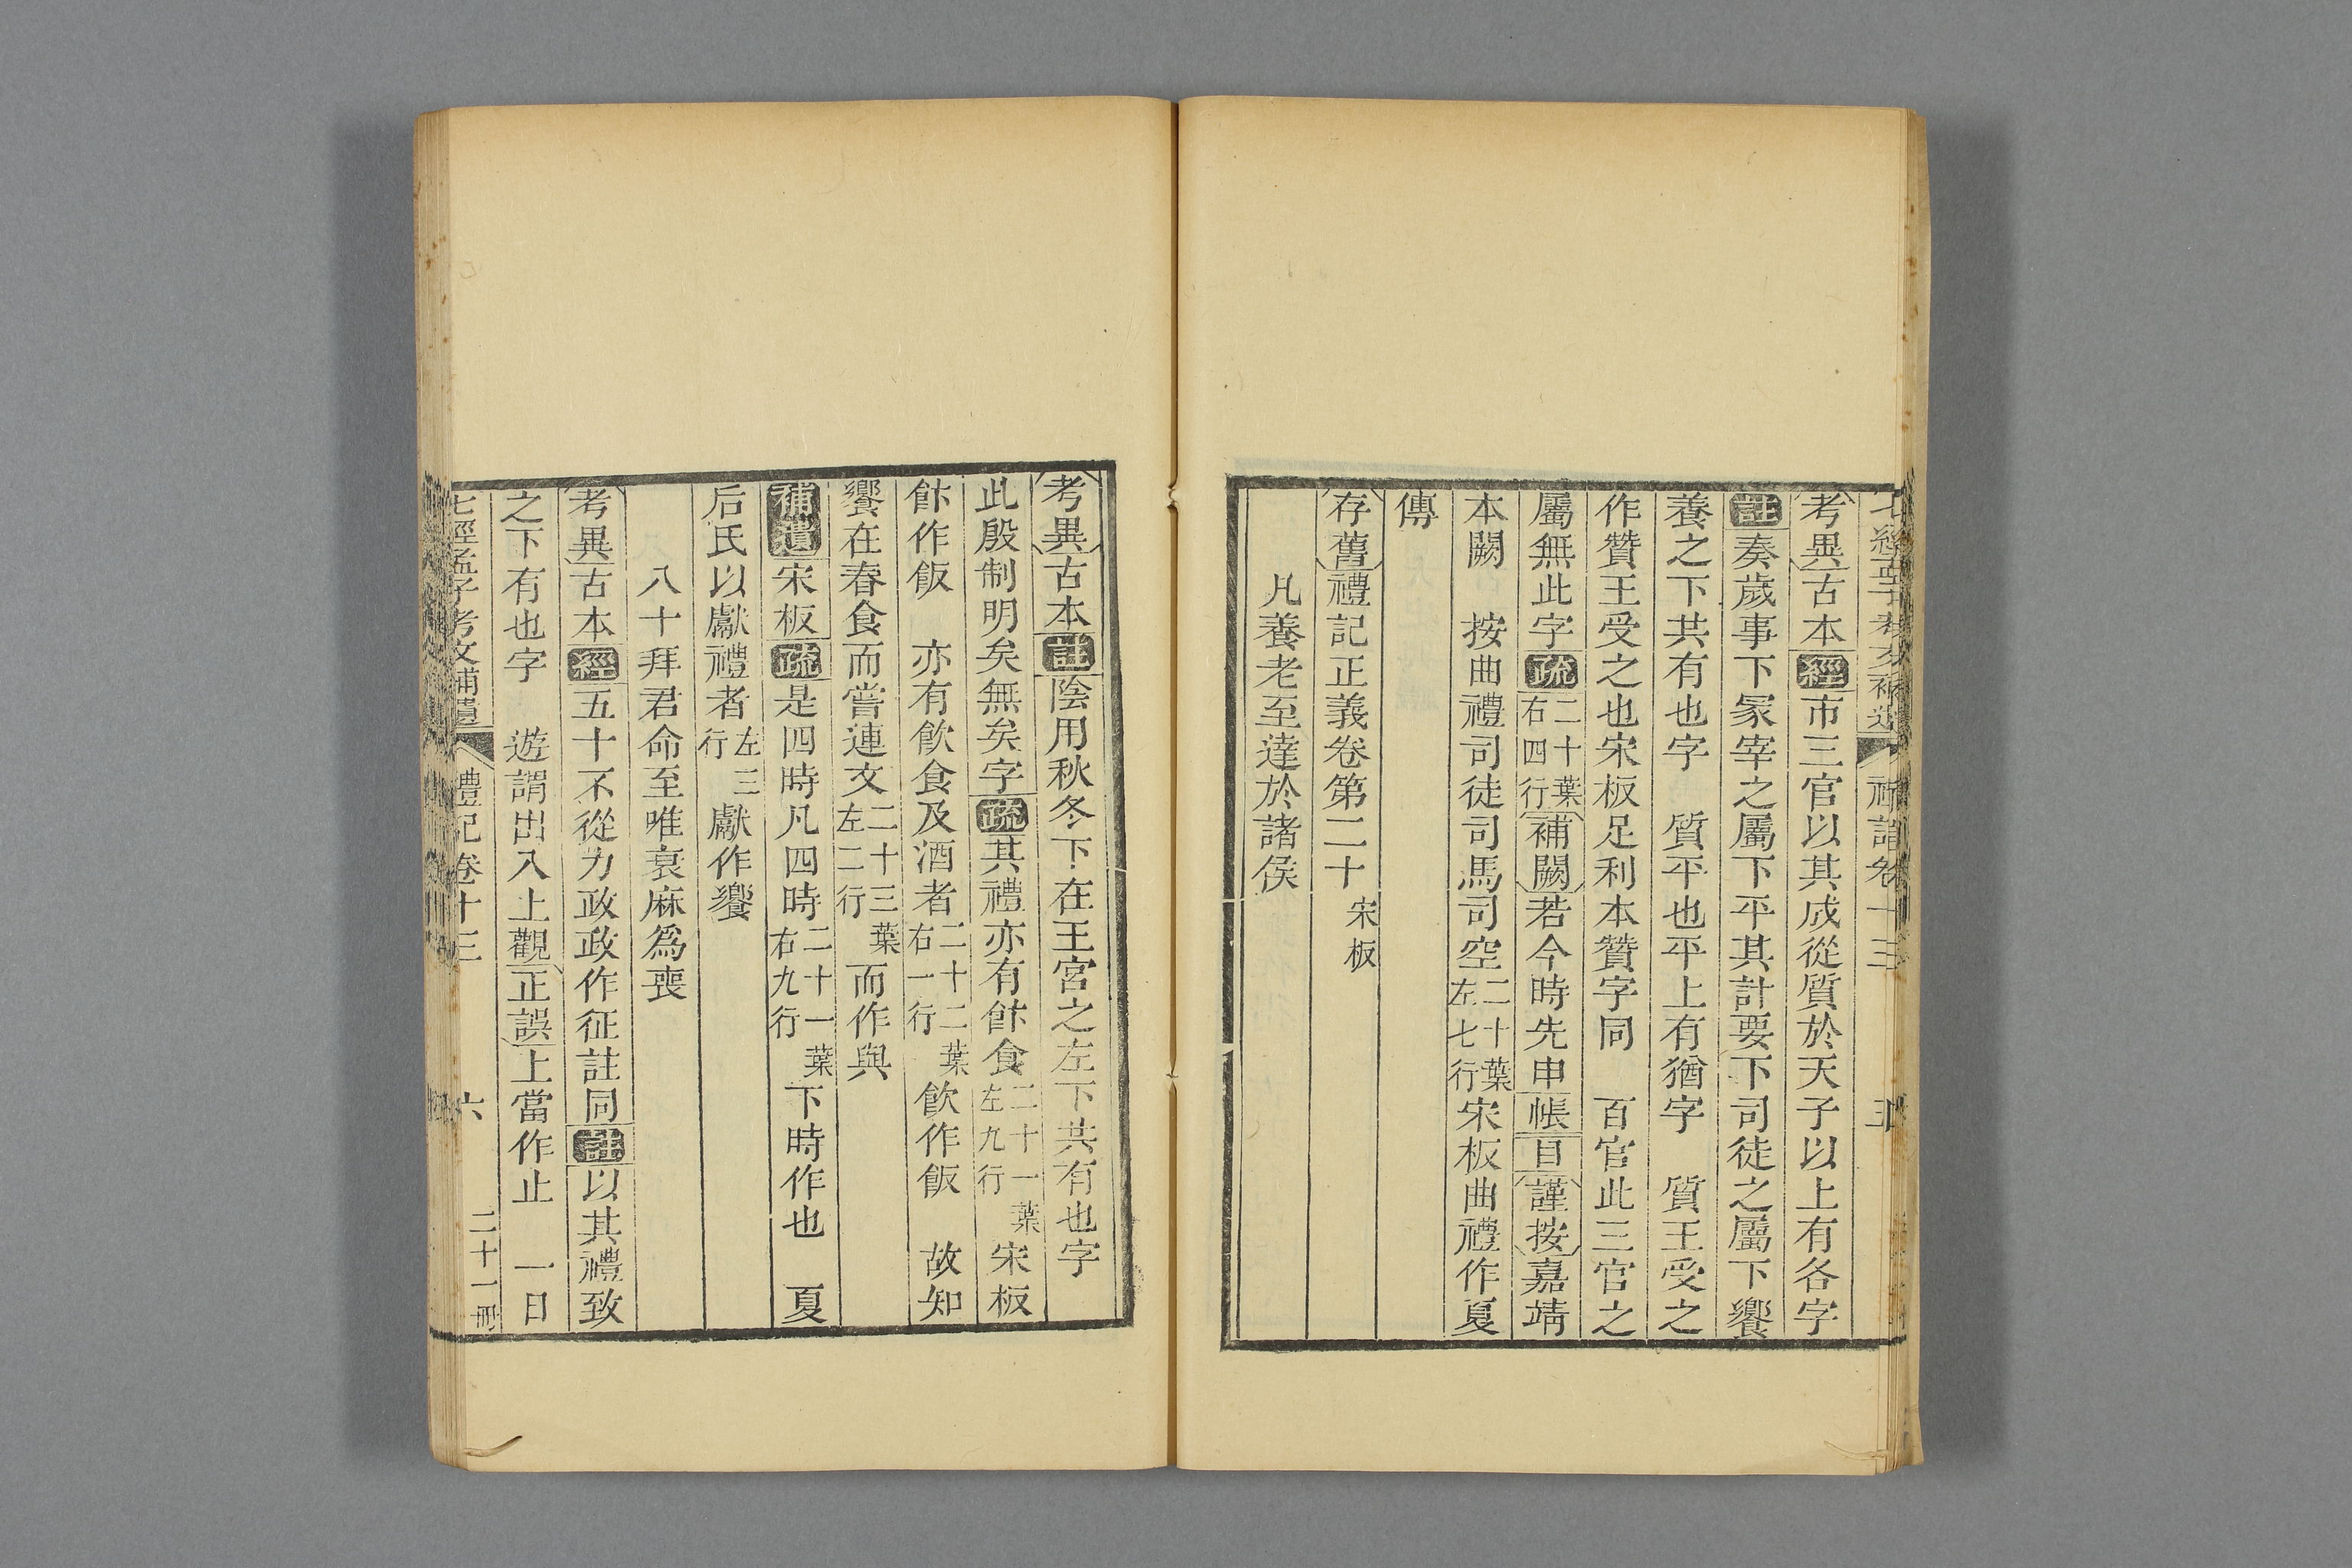 七經孟子考文補遺 禮記卷十三 五
考異古本經市三官以其成從質於天子以上有各字
註奏歲事下冢宰之屬下平其計要下司徒之屬下饗
養之下共有也字 質平也平上有猶字 質王受之
作贊王受之也宋板足利本贊字同 百官此三官之
屬無此字疏二十葉右四行補闕若今時先申帳目謹按嘉靖
本闕 按曲禮司徒司馬司空二十葉左七行宋板曲禮作夏
傳
存舊禮記正義卷第二十 宋板
凡養老至達於諸侯
考異古本註陰用秋冬下在王宮之左下共有也字
此殷制明矣無矣字疏其禮亦有飰食二十一葉左九行宋板
飰作飯 亦有飲食及酒者二十二葉右一行飲作飯 故知
饗在春食而嘗連文二十三葉左二行而作與
補遺宋板疏是四時凡四時二十一葉右九行下時作也 夏
后氏以獻禮者左三行獻作饗
八十拜君命至唯衰麻為喪
考異古本經五十不從力政政作征註同註以其禮致
之下有也字 遊謂出入上觀正誤上當作止 一日
七經孟子考文補遺 禮記卷十三 六 二十一冊